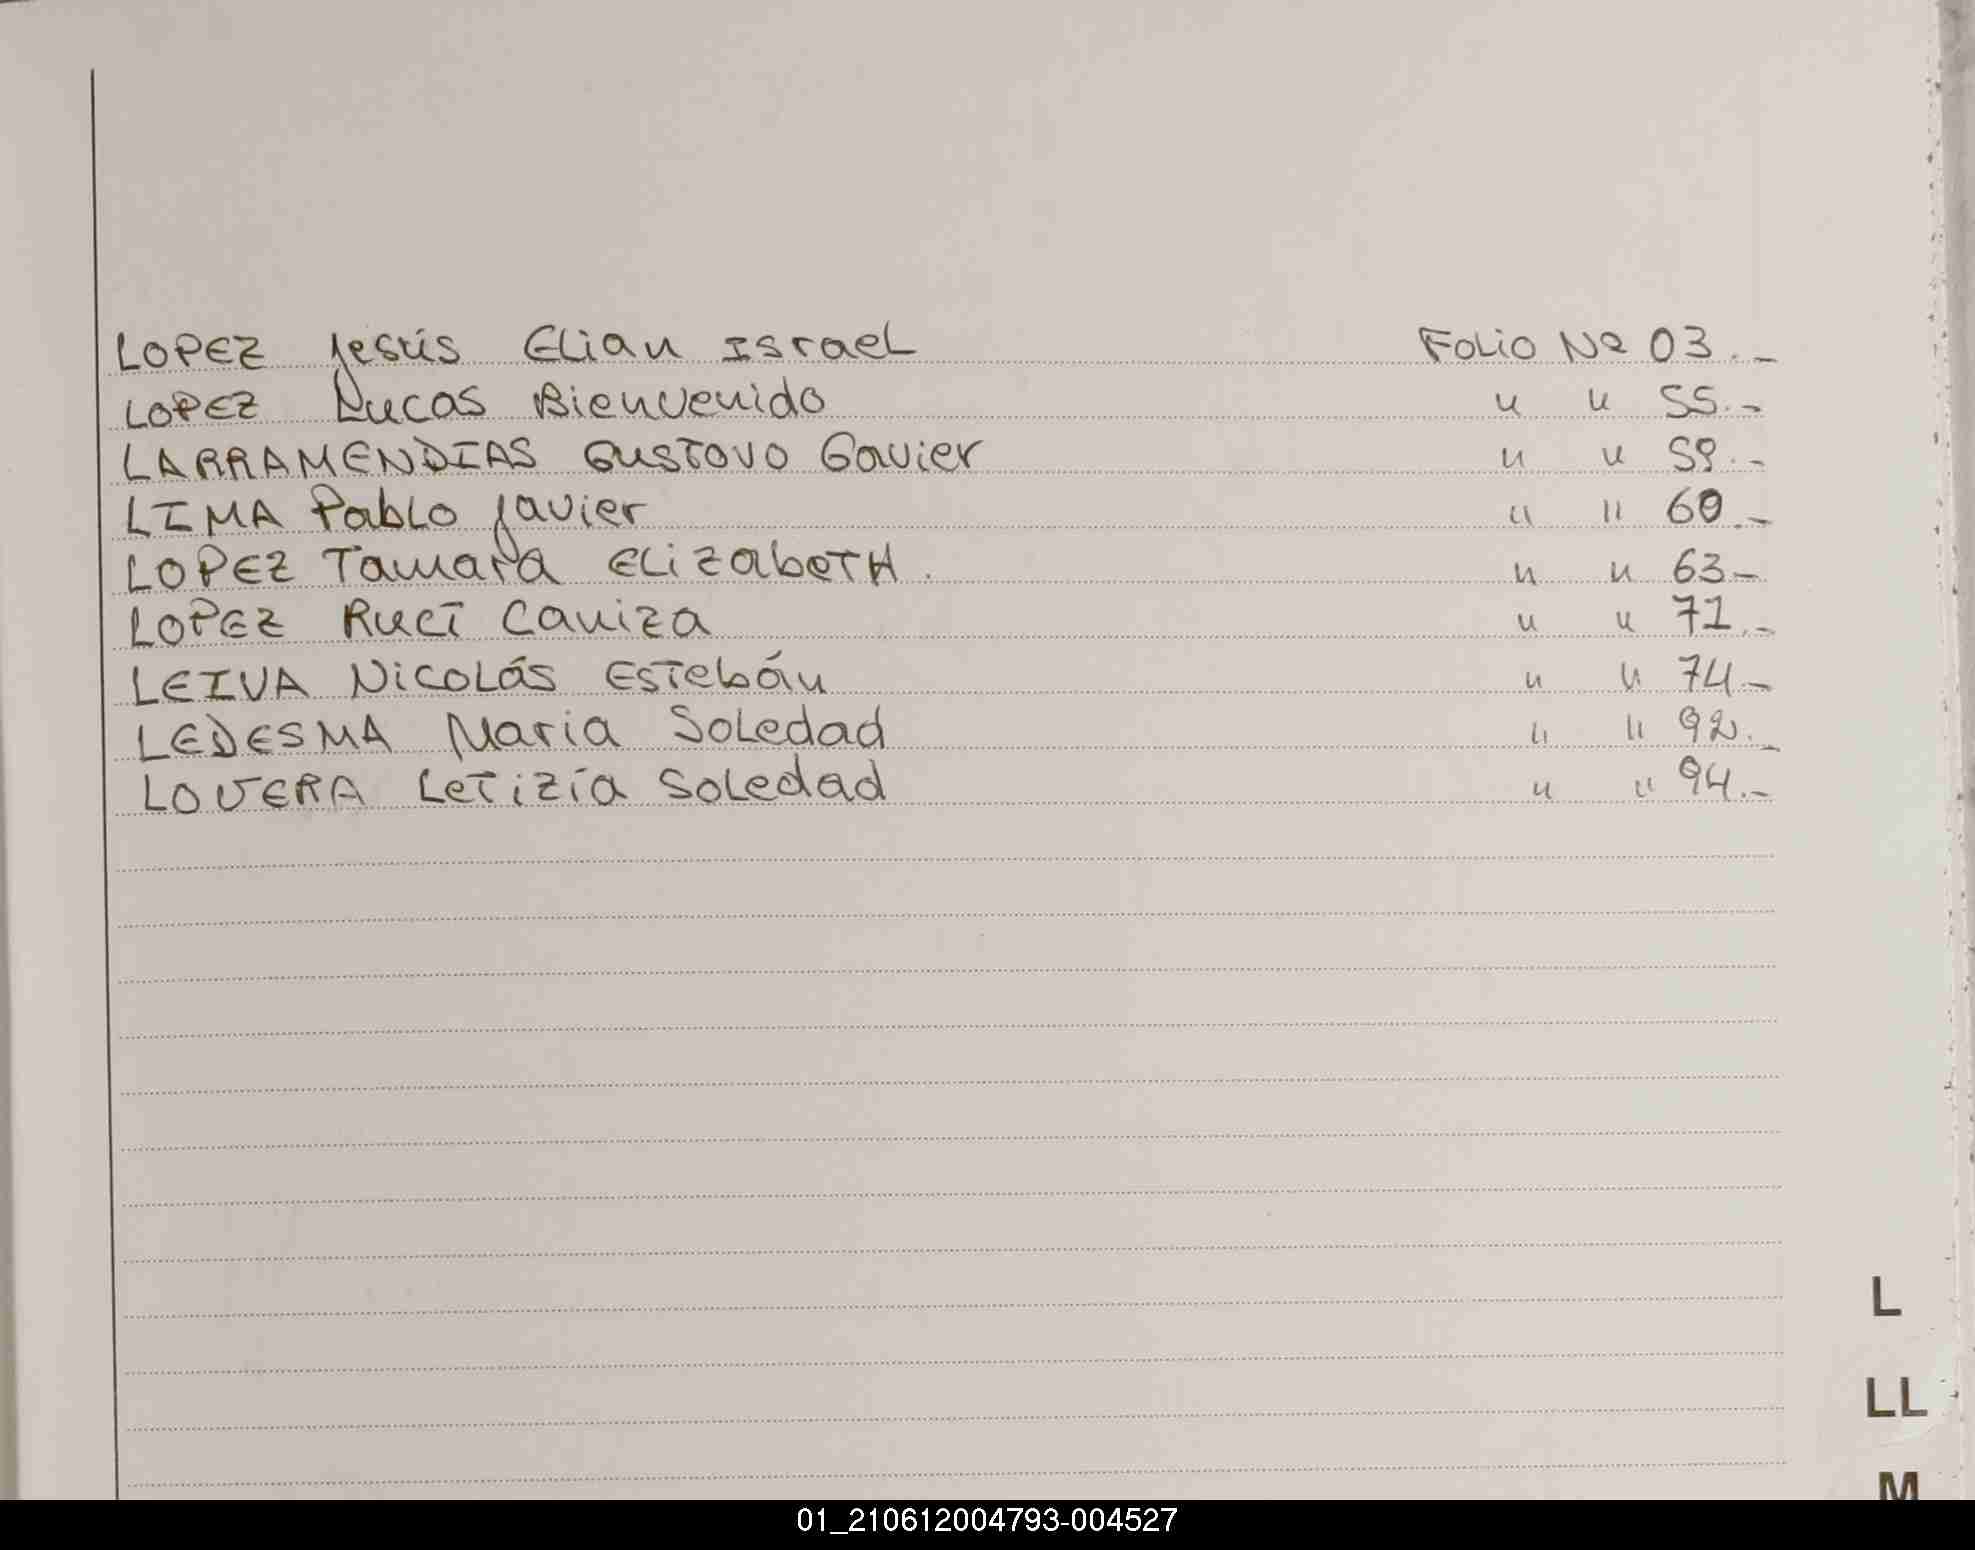 LOPEZ Jesús Elian Israel Folio Nº 03.-
LOPEZ Lucas Bienvenido " " 55.-
LARRAMENDIAS Gustavo Gavier " " 59.-
LIMA Pablo Javier " " 60.-
LOPEZ Tamara Elizabeth. " " 63-
LOPEZ Ruct Caniza " " 71.-
LEIVA Nicolás Estebán " " 74.-
LEDESMA Maria Soledad " " 92.-
LOVERA Letizía Soledad " " 94.-
L
LL
M
01_210612004793-004527